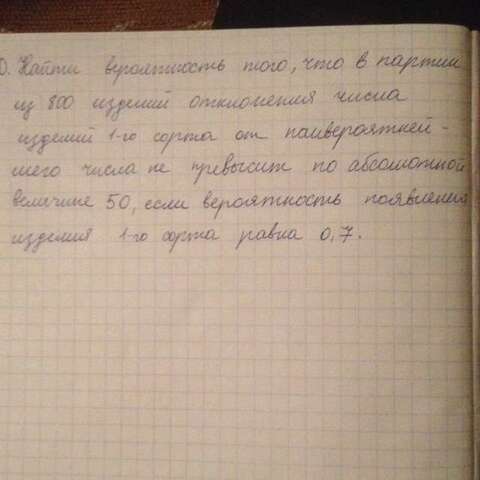 0. Найти вероятность того, что в партии
из 800 изделий отклонения числа
изделий 1-го сорта от наивероятней-
шего числа не превысит по абсолютной
величине 50, если вероятность появления
изделия 1-го сорта равна 0,7.